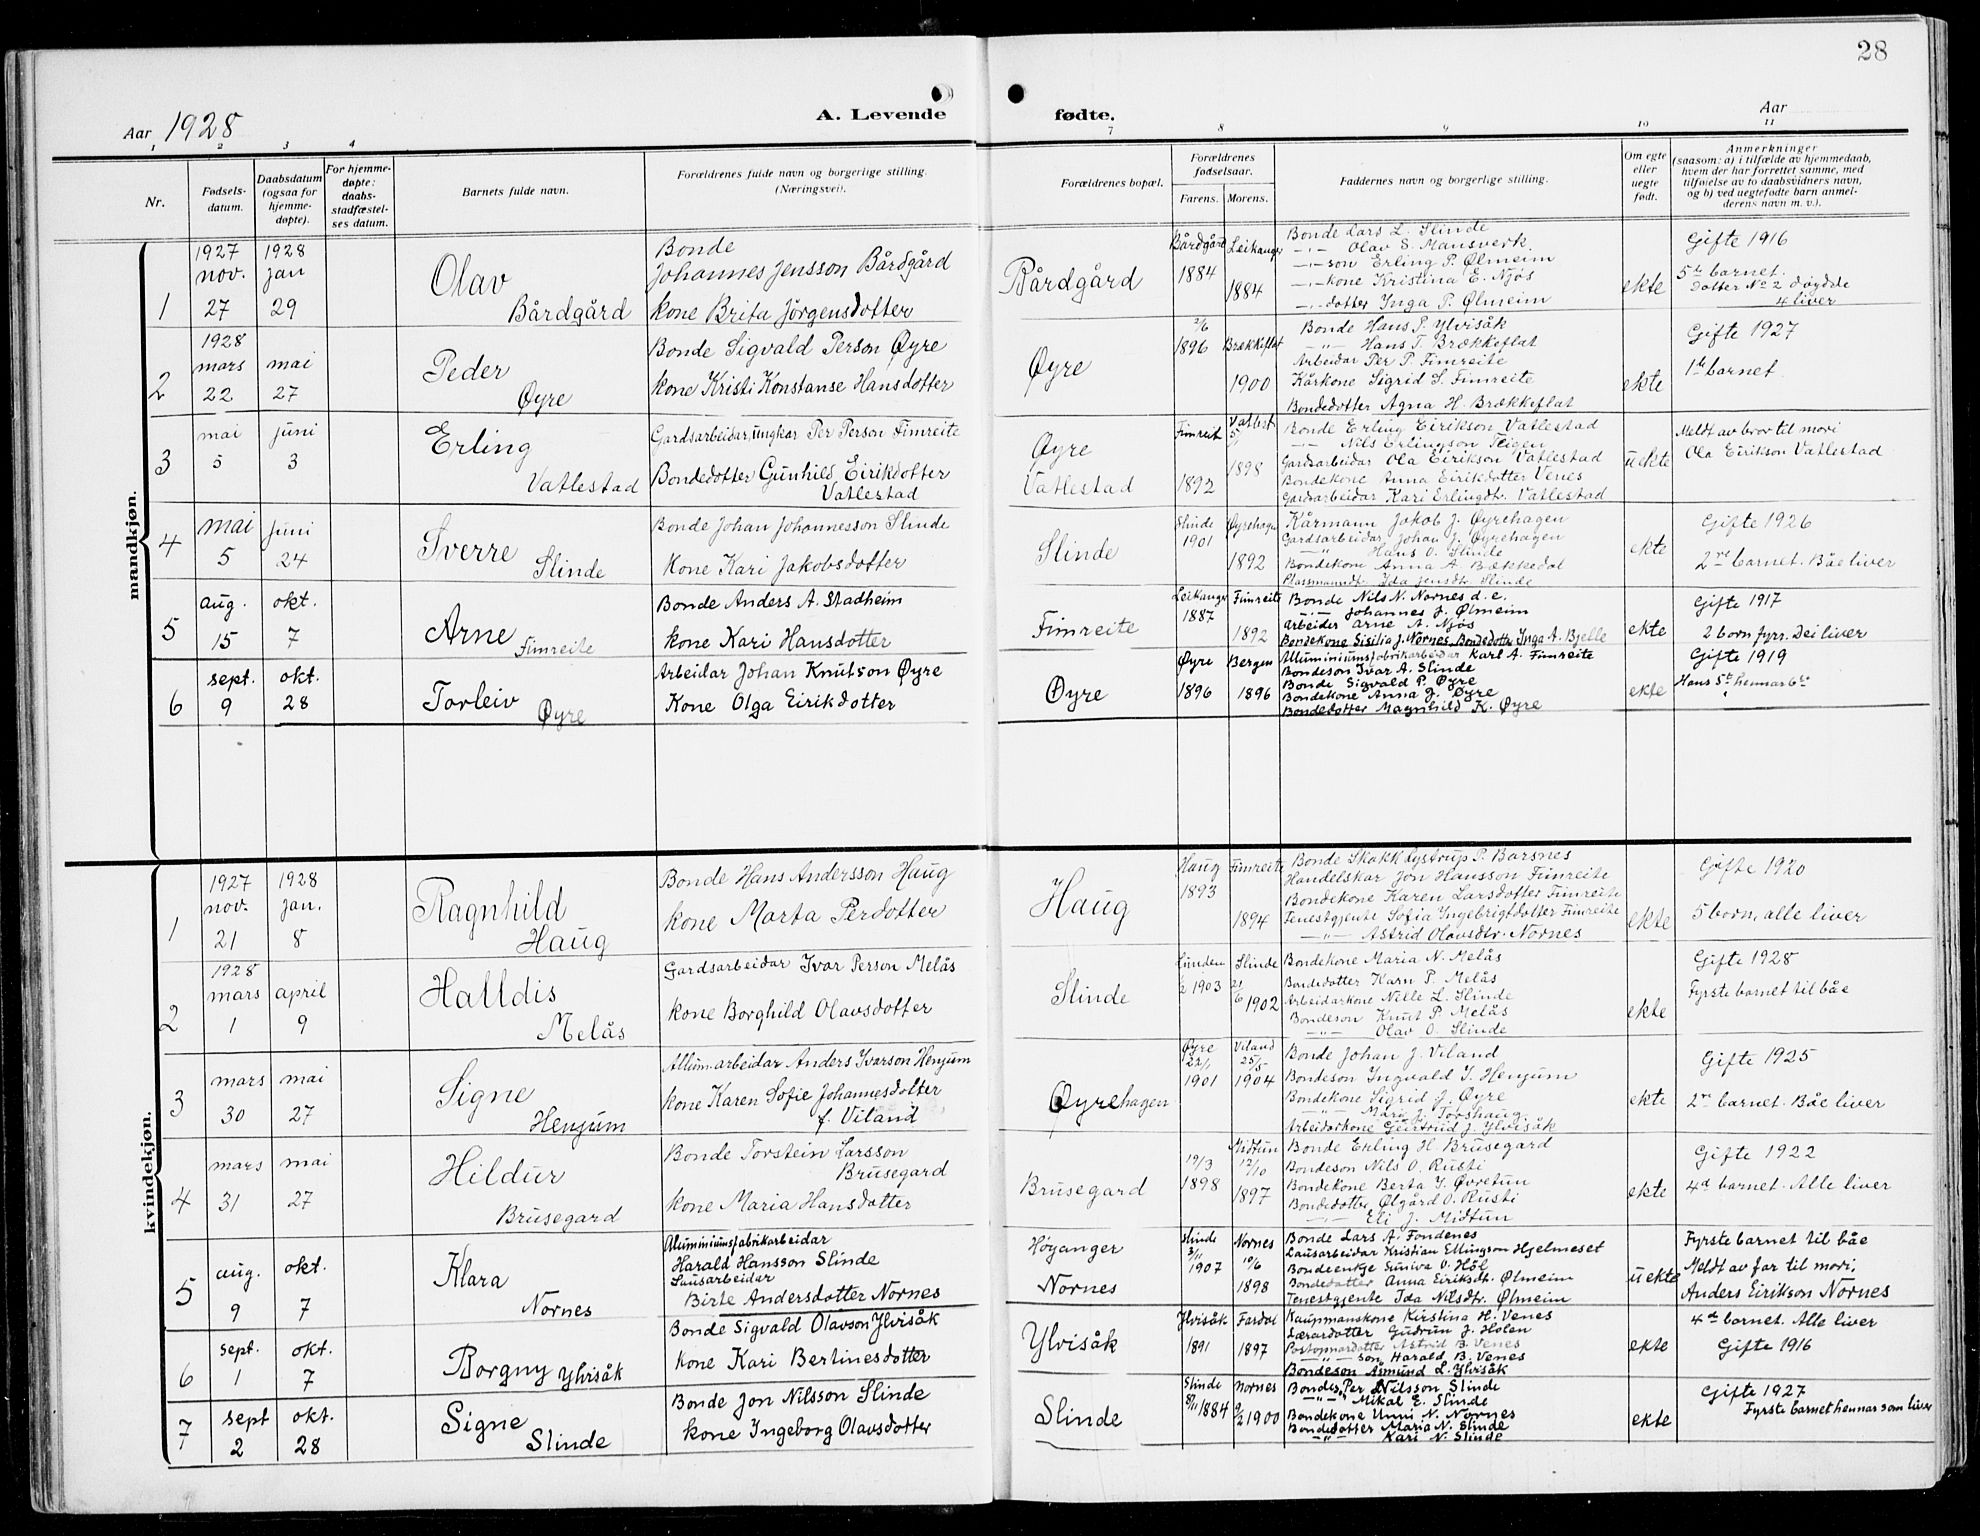 28
Aar 1928
A. Levende fødte.
Aar
1 2 3 4 7 8 9 10 11
Nr.
Fødsels-
datum.
Daabsdatum
(ogsaa for
hjemme-
døpte).
For hjemme-
døpte:
daabs-
stadfæstel-
ses datum.
Barnets fulde navn.
Forældrenes fulde navn og borgerlige stilling.
(Næringsvei).
Forældrenes bopæl.
Forældrenes
fødselsaar.
Farens. Morens.
Faddernes navn og borgerlige stilling.
Om egte
eller
uegte
født.
Anmerkninger
(saasom: a) i tilfælde av hjemmedaab,
hvem der har forrettet samme, med
tilføielse av to daabsvidners navn,
og b) ved uegtefødte barn anmel-
derens navn m. v.).
mandkjøn.
1
1927
nov.
27
1928
jan
29
Olav
Bårdgård
Bonde
Johannes Jensson Bårdgård
kone Brita Jörgensdotter
Bårdgård
Bårdgård
1884
Leikanger
1884
Bonde Lars L. Slinde
-"- Olav S. Mansverk.
-"-son Erling P. Ølmeim
-"-kone Kristina E. Njøs
-"-dotter Inga P. Ølmeim
ekte
Gifte 1916
5te barnet.
Dotter No 2 døydde
4 liver
2
1928
mars
22
mai
27
Peder
Øyre
Bonde Sigvald Person Øyre
kone Kristi Konstanse Hansdotter
Øyre
2/6
1896
Brækkeflat
1900
Bonde Hans P. Ylvisåk
-"- Hans T. Brækkeflat
Arbeidar Per P. Fimreite
Kårkone Sigrid S. Fimreite
Bondedotter Agna H. Brækkeflat
ekte
Gifte 1927
1ste barnet
3
mai
5
juni
3
Erling
Vatlestad
Gardsarbeidar, ungkar Per Person Fimreite
Bondedotter Gunhild Eirikdotter
Vatlestad
Øyre
Vatlestad
Fimreit
1892
Vatlest
5/
1898
Bonde Erling Eirikson Vatlestad
-"- Nils Erlingson Teigen
Gardsarbeidar Ola Eirikson Vatlestad
Bondekone Anna Eirikdotter Venes
Gardsarbeidar Kari Erlingdtr. Vatlestad
uekte
Meldt av bror til mori
Ola Eirikson Vatlestad
4
mai
5
juni
24
Sverre
Slinde
Bonde Johan Johannesson Slinde
Kone Kari Jakobsdotter
Slinde
Slinde
1901
Øyrehagen
1892
Kårmann Jakob J. Øyrehagen
Gardsarbeidar Johan J. Øyrehagen
-"- Hans O. Slinde
Bondekone Anna A Bækkedal
Plassmanndt. Ida Jensdtr. Slinde
ekte
Gifte 1926
2re barnet. Båe liver
5
aug.
15
okt.
7
Arne
Fimreite
Bonde Anders A. Stadheim
kone Kari Hansdotter
Fimreite
Leikanger
1887
Fimreite
1892
Bonde Nils N. Nornes d.e.
-"- Johannes J. Ølmeim
Arbeider Arne A. Njøs
Bondekone Sisilia J. Nornes, Bondedotter Inga A. Bjelle
ekte
Gifte 1917
2 born fyrr. Dei liver
6
sept.
9
okt.
28
Torleiv
Øyre
Arbeidar Johan Knutson Øyre
Kone Olga Eirikdotter
Øyre
Øyre
1896
Bergen
1896
Alluminiumsfabrikarbeidar Karl A. Fimreite
Bondeson Ivar A. Slinde
Bonde Sigvald P. Øyre
Bondekone Anna J. Øyre
Bondedotter Magnhild K. Øyre
ekte
Gifte 1919
Hans 5te hennar 6te
kvindekjøn.
1
1927
nov.
21
1928
jan.
8
Ragnhild
Haug
Bonde Hans Andersson Haug
kone Marta Perdotter
Haug
Haug
1893
Fimreite
1894
Bonde Skakk Lystrup P. Barsnes
Handelskar Jon Hansson Fimreite
Bondekone Karen Larsdotter Fimreite
Tenestgjente Sofia Ingebrigtdotter Fimreite
-"- Astrid Olavsdtr. Nornes
ekte
Gifte 1920
5 born, alle liver
2
1928
mars
1
april
9
Halldis
Melås
Gardsarbeidar Ivar Person Melås
kone Borghild Olavsdotter
Slinde
2 1903
Slinde
21/6 1902
Bondekone Maria N. Melås
Bondedotter Karn P. Melås
Arbeidarkone Nille L. Slinde
Bondeson Knut P. Melås
-"- Olav O. Slinde
ekte
Gifte 1928
Fyrste barnet til båe
3
mars
30
mai
27
Signe
Henjum
Allum.arbeidar Anders Ivarson Henjum
kone Karen Sofie Johannesdotter
f. Viland
Øyrehagen
Øyre
22/1
1901
Viland
25/5
1904
Bonde Johan J. Viland
Bondeson Ingvald I. Henjum
Bondekone Sigrid J. Øyre
-"- Mari J. Torshaug.
Arbeidarkone Gjertrud J. Ylvisåk
ekte
Gifte 1925
2re barnet. Båe liver
4
mars
31
mai
27
Hildur
Brusegard
Bonde Torstein Larsson
Brusegard
kone Maria Hansdotter
Brusegard
19/3
1898
Midtun
12/10
1897
Bonde Erling H. Brusegard
Bondeson Nils O. Rusti
Bondekone Berta Y. Øvretun
Bondedotter Ølgård O. Rusti
-"- Eli J. Midtun
ekte
Gifte 1922
4de barnet. Alle liver
5
aug.
9
okt.
7
Klara
Nornes
Aluminiumsfabrikarbeidar
Harald Hansson Slinde
Lausarbeidar
Birte Andersdotter Nornes
Høyanger
Nornes
Slinde
3/11
1907
Nornes
10/6
1898
Bonde Lars A. Fondenes
Lausarbeidar Kristian Ellingson Hjelmeset
Bondeenkje Eunive O. Høl
Bondedotter Anna Eiriksdt. Ølmeim
Tenestgjente Ida Nilsdtr. Ølmeim
uekte
Fyrste barnet til båe
Meldt av far til mori,
Anders Eirikson Nornes
6
sept.
1
okt.
7
Borgny Ylvisåk
Bonde Sigvald Olavson Ylvisåk
kone Kari Bertinesdotter
Ylvisåk
Ylvisåk
1891
Fardal
1897
Kaupmanskone Kirstina H. Venes
Lærardotter Gudrun J. Holen
Postopnardotter Astrid B. Venes
-"- son Harald B. Venes
Bondeson Asmund L. Ylvisåk
ekte
4de barnet. Alle liver
Gifte 1916
7
sept
2
okt.
28
Signe
Slinde
Bonde Jon Nilsson Slinde
kone Ingeborg Olavsdotter
Slinde
Slinde
8/11 1884
Nornes
9/2 1900
Bonde Per Nilsson Slinde
-"- Mikal E. Slinde
Bondekone Unni N. Nornes
Bondedotter Maria N. Slinde
-"- Kari N. Slinde
ekte
Gifte 1927
Fyrste barnet hennar som liver